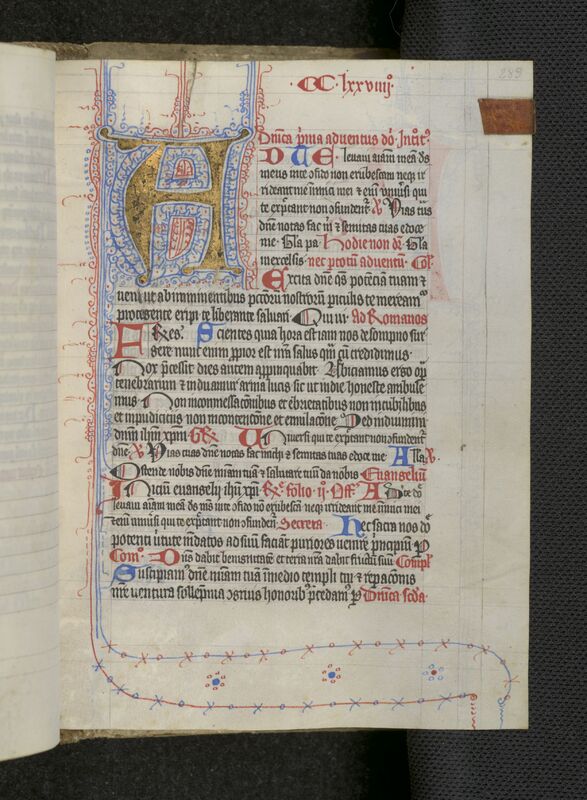 289
CC lxxviiij
Dnica pria adventus dni Introit
D te levavi aiam mea ds
meus in te cfido non erubescam neqz ir
rideant me inimici mei z eni vniusi qui
te expectant non cfundent. V Vias tuas
dne notas fac m z semitas tuas edoce
me. Gla pa. Hodie non dr. Gla
in excelsis. nec per totum adventum. Col.
Excita dne qs potencia tuam z
veni vt ab imminentibus pctoru nostroru piculis te mereamur
protegente eripi te liberante salvari. Qui vi. Ad Romanos
Fres. Scientes quia hora est iam nos de sompno sur
gere nunc enim ppior est nra salus qm cu credidimus.
Nox pcessit dies autem appinquabit. Abiciamus ergo opa
tenebrarum z induamur arma lucis sic ut in die honeste ambule
mus. Non in commessacionibus et ebrietatibus non in cubilibus
et impudiciciis non in contencione et emulacione. Sed induimini
dnm ihm xpm. Gr. Vniversi qui te expectant non cfundent
dne. V Vias tuas dne notas fac michi z semitas tuas edoce me. Alla. V.
Ostende nobis dne miam tua z salutare tuu da nobis. Evangeliu
Iniciu evangelii ihu xpi. folio ij. Off. Ad te do
levavi aiam mea ds ms in te cfido no erubesca neqz irrideant me inimici mei
z eni vniusi qui te expectant non cfundent. Secreta. Hec sacra nos do
potenti virtute mundatos ad suu faciant puriores venire principium. P
Com. Dns dabit benignitate et terra nra dabit fructu suu. Compl
Suscipiam dne miam tua in medio templi tui z repacionis
nre ventura sollempnia cgruis honorib pcedam. P Dnica scda